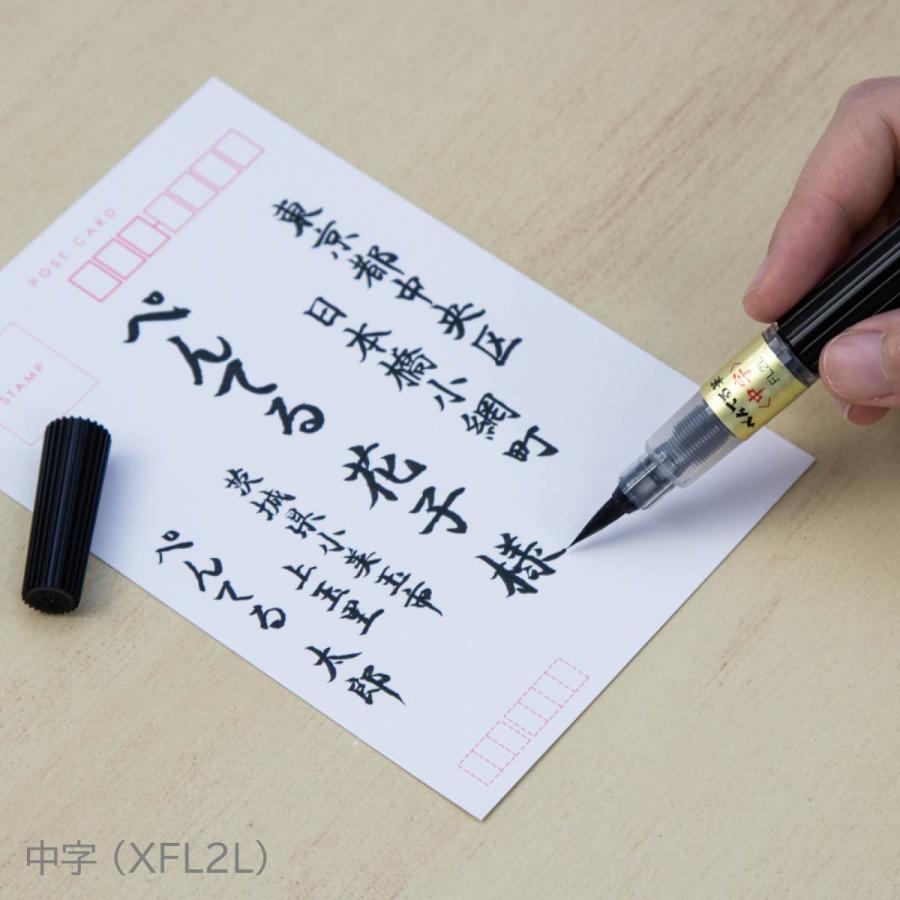 POST CARD
STAMP
東京都中央区
日本橋小網町
ぺんてる 花子 様
茨城県小美玉市
上玉里
ぺんてる 太郎
ぺんてる筆
〈中字〉
FL2L
中字（XFL2L）